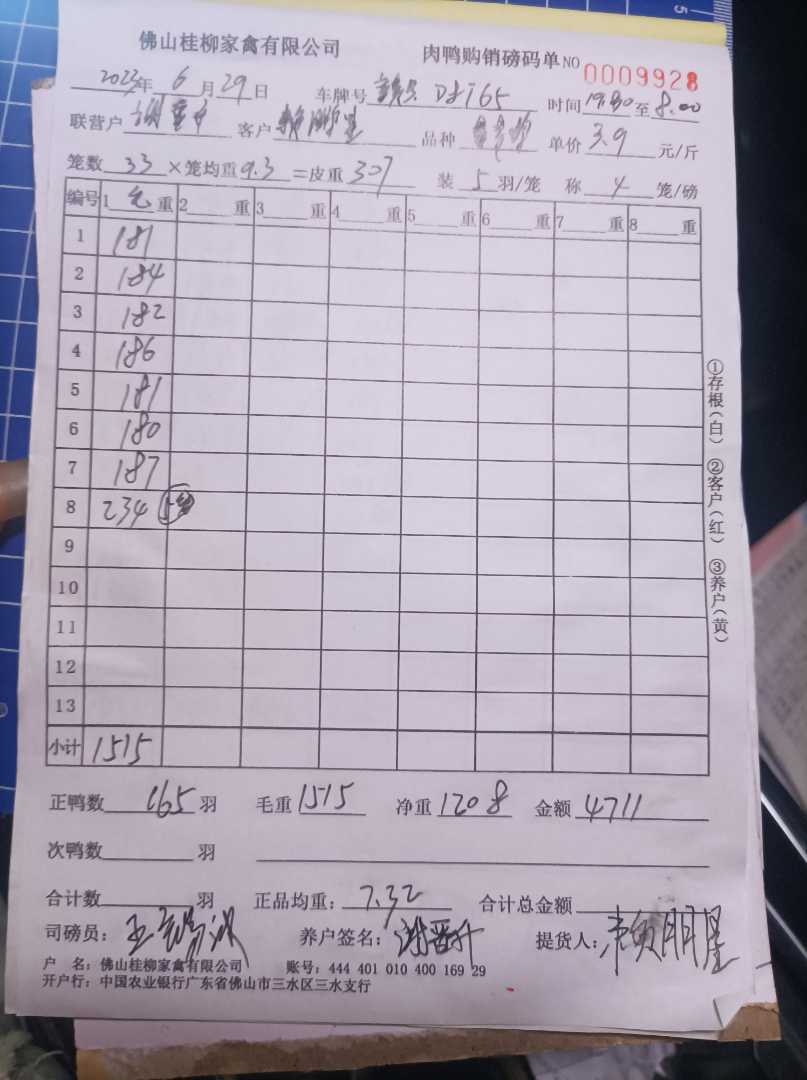 佛山桂柳家禽有限公司 肉鸭购销磅码单 NO 0009928
2023年 6月29日 车牌号 时间 至 8.00
联营户 客户 品种 单价 3.9 元/斤
笼数 33 ×笼均重 9.3 =皮重 307 装 5 羽/笼 称 4 笼/磅
编号 1 毛 重 2 重 3 重 4 重 5 重 6 重 7 重 8 重
1 181
2 184
3 182
4 186
5 181
6 180
7 187
8 234
9
10
11
12
13
小计 1515
正鸭数 165 羽 毛重 1515 净重 1208 金额 4711
次鸭数 羽
合计数 羽 正品均重: 7.32 合计总金额
司磅员: 养户签名: 提货人: 赖明星
户 名: 佛山桂柳家禽有限公司 账号: 444 401 010 400 169 29
开户行: 中国农业银行广东省佛山市三水区三水支行
①存根(白) ②客户(红) ③养户(黄)
5